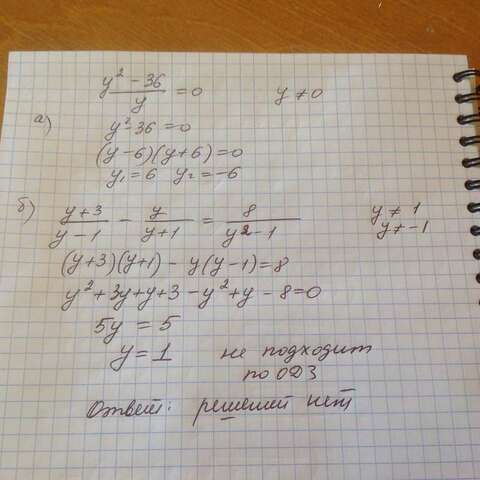 а) (y² - 36)/y = 0    y ≠ 0
y² - 36 = 0
(y-6)(y+6) = 0
y₁ = 6   y₂ = -6
б) (y+3)/(y-1) - y/(y+1) = 8/(y²-1)    y ≠ 1
y ≠ -1
(y+3)(y+1) - y(y-1) = 8
y² + 3y + y + 3 - y² + y - 8 = 0
5y = 5
y = 1   не подходит
по ОДЗ
Ответ: решений нет